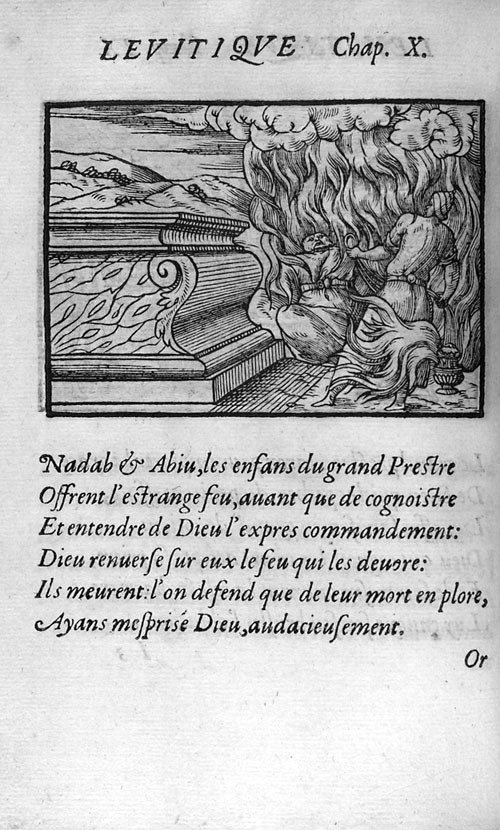 LEVITIQVE Chap. X.
Nadab & Abiu, les enfans du grand Prestre
Offrent l'estrange feu, auant que de cognoistre
Et entendre de Dieu l'expres commandement:
Dieu renuerse sur eux le feu qui les deuore:
Ils meurent: l'on defend que de leur mort en plore,
Ayans mesprisé Dieu, audacieusement.
Or